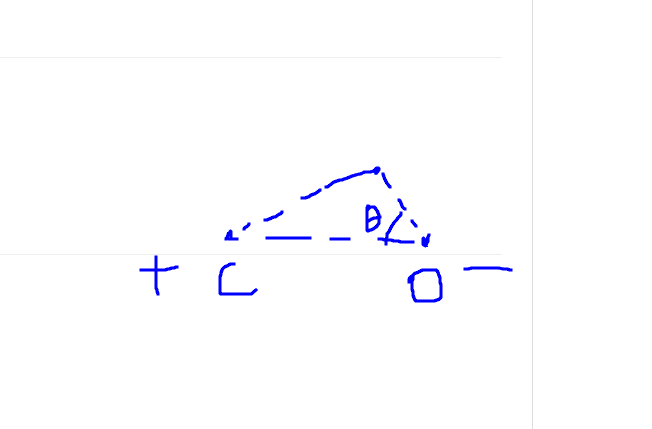 θ
+ C O −